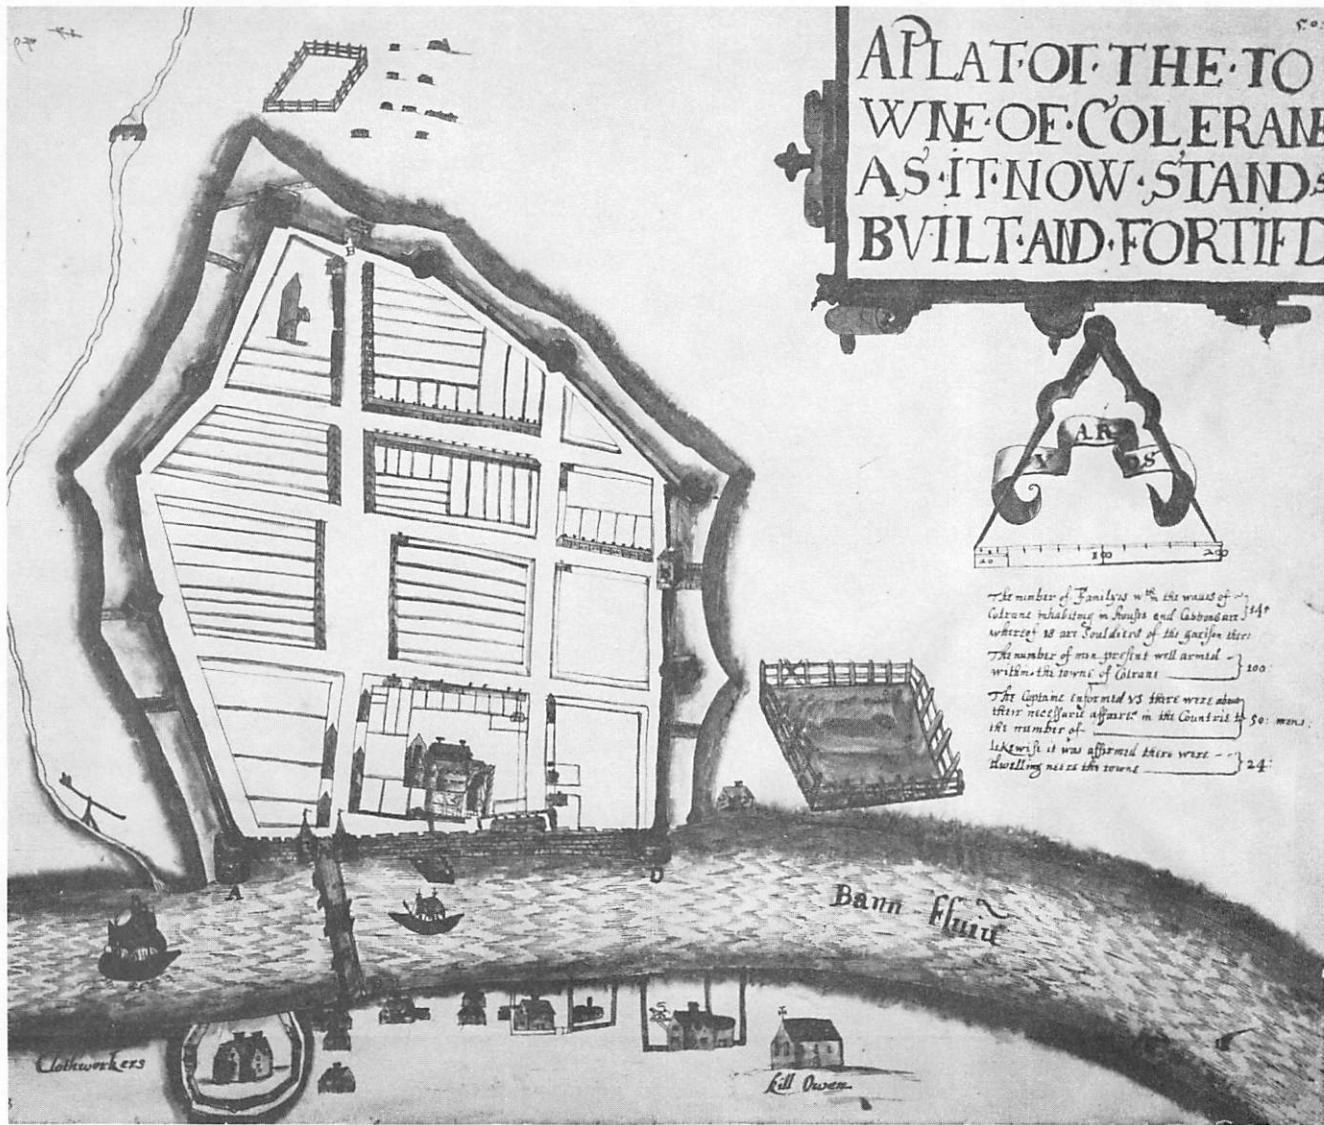 50:
A PLAT·OF·THE·TO
WNE·OF·COLERANE
AS·IT·NOW·STANDS
BVILT·AND·FORTIFD
YARDS
20 100 200
The number of Familyes wth in the waues of
Colrane inhabiting in houses and Cabbons are
whereof 18 are Souldiers of the garison there
The number of men present well armed
within the towne of Colrane 100:
The Captaine enformed vs there were about
their necessarie affaires in the Countrie to 50: mens.
the number of
likewise it was affirmed there were
dwelling neere the towne 24:
B
A
D
Bann ffluiũ
Clothworkers
kill Owen